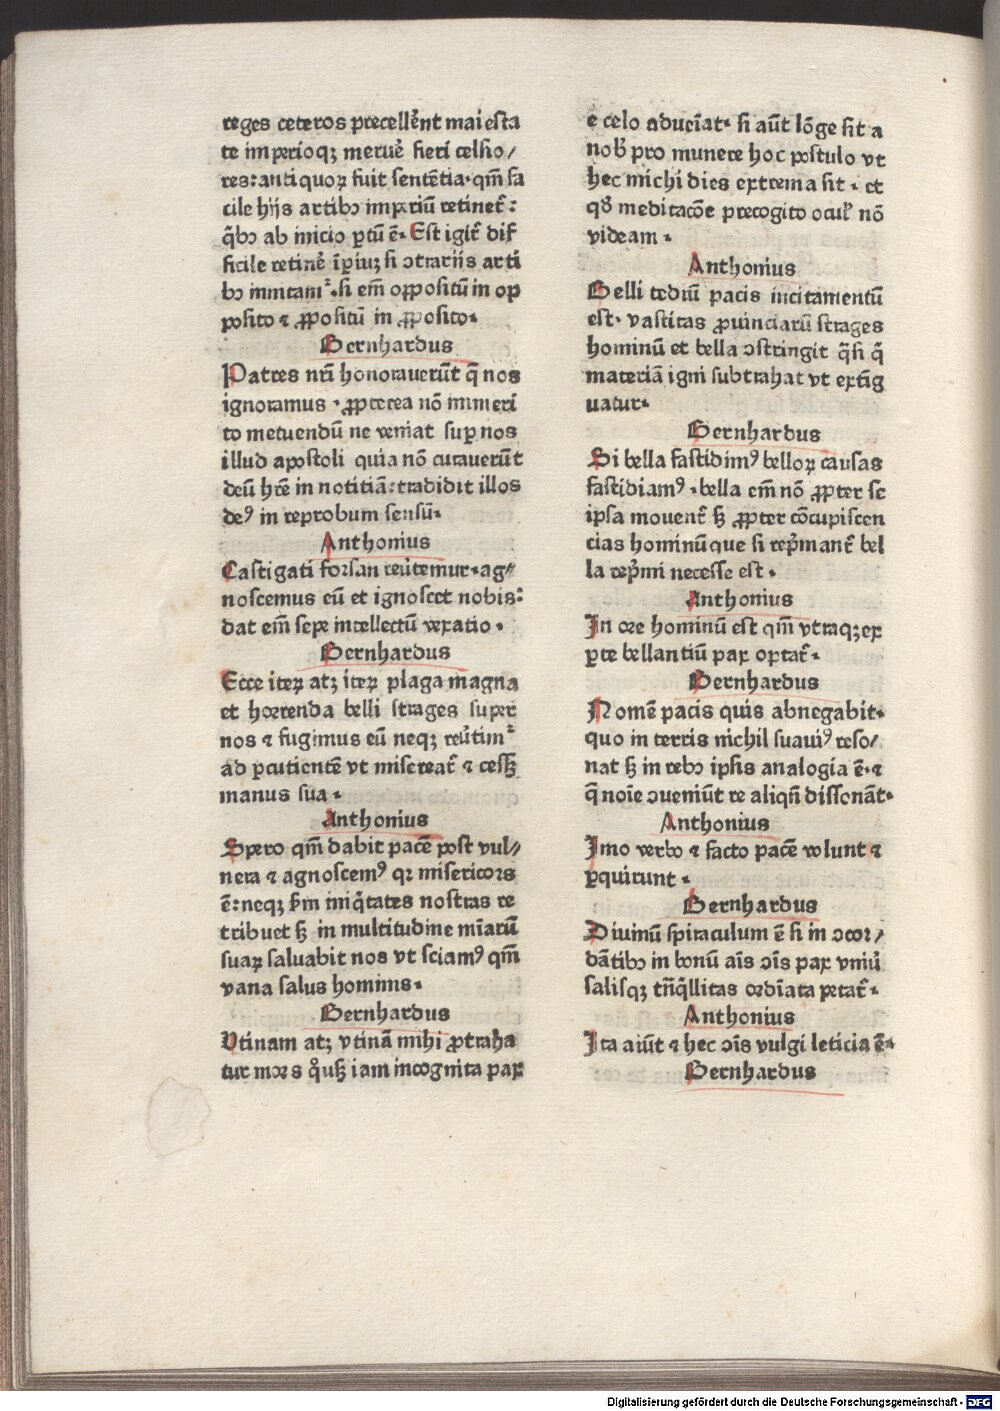 reges ceteros precellēnt maiesta
te imperioqꝫ meruē fieri celsio/
res: antiquoꝝ fuit sentētia· qm̄ fa
cile hijs artibꝫ impriū retinet̄:
q̄bꝫ ab inicio ꝑtū ē· Est igit̄ dif
ficile retinē īꝑiuꝫ si ↄtrarijs arti
bꝫ inmitam᷑· si em̄ oꝓpositū in op
posito ⁊ ꝓpositū in ꝓposito·
Bernhardus
Patres nr̄i honorauerūt q̄ nos
ignoramus · ꝓpterea nō immeri
to metuendū ne veniat suꝑ nos
illud apostoli quia nō curauerūt
deū hr̄e in notitiā: tradidit illos
deꝰ in reprobum sensū·
Anthonius
Castigati forsan reūtemur· ag//
noscemus eū et ignoscet nobis:
dat em̄ sepe intellectū vexatio·
Bernhardus
Ecce iteꝝ atꝫ iteꝝ plaga magna
et horrenda belli strages super
nos ⁊ fugimus eū neqꝫ reūtim᷑
ad ꝑcutientē vt misereat̄ ⁊ cessꝫ
manus sua·
Anthonius
Spero qm̄ dabit pacē post vul//
nera ⁊ agnoscemꝰ qꝛ misericors
ē: neqꝫ ẜm iniq̄tates nostras re
tribuet sꝫ in multitudine mīarū
suaꝝ saluabit nos vt sciamꝰ qm̄
vana salus hominis·
Bernhardus
Vtinam atꝫ vtinā mihi ꝓtraha
tur mors qͦusqꝫ iam incognita pax
e celo aduēiat· si aūt lōge sit a
nob̄ pro munere hoc postulo vt
hec michi dies extrema sit· et
qd̄ meditacōe precogito ocuł nō
videam·
Anthonius
Belli tediū pacis incitamentū
est· vastitas ꝓuinciarū strages
hominū et bella ↄstringit q̄si q̄
materiā igni subtrahat vt extīg
uatur·
Bernhardus
Si bella fastidimꝰ belloꝝ causas
fastidiamꝰ· bella em̄ nō ꝓpter se
ipsa mouent̄ sꝫ ꝓpter cōcupiscen
cias hominū que si rep̄mant̄ bel
la rep̄mi necesse est·
Anthonius
In ore hominū est qm̄ vtraqꝫ ex
ꝑte bellantiū pax optat̄·
Bernhardus
Nomē pacis quis abnegabit·
quo in terris nichil suauiꝰ reso/
nat sꝫ in rebꝫ ipsis analogia ē· ⁊
q̄ noīe ↄueniūt re aliqn̄ dissonāt·
Anthonius
Imo verbo ⁊ facto pacē volunt ⁊
ꝑquirunt·
Bernhardus
Diuinū spiraculum ē si in ↄcor/
dātibꝫ in bonū aīs ↄīs pax vniū
salisqꝫ trāq̄llitas ordīata petat̄·
Anthonius
Ita aiūt ⁊ hec ↄīs vulgi leticia ē·
Bernhardus
Digitalisierung gefördert durch die Deutsche Forschungsgemeinschaft - DFG